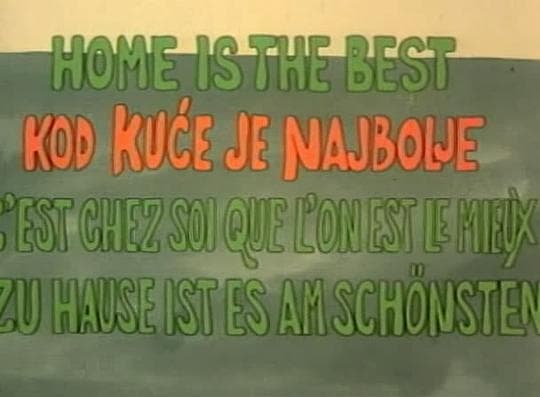 HOME IS THE BEST
KOD KUĆE JE NAJBOLJE
C'EST CHEZ SOI QUE L'ON EST LE MIEUX
ZU HAUSE IST ES AM SCHÖNSTEN